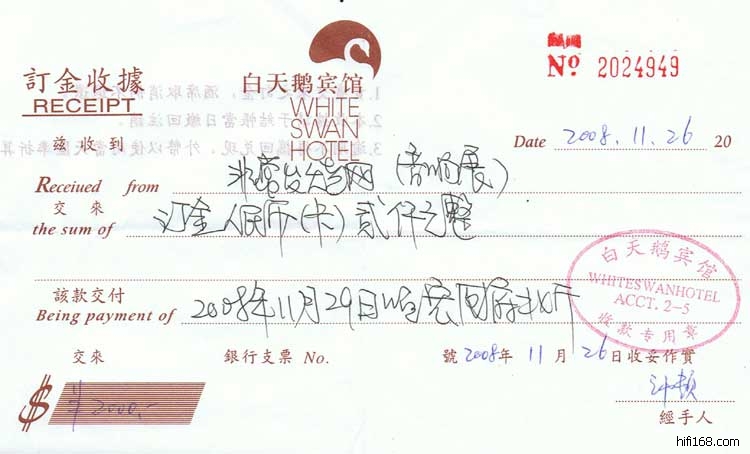 訂金收據
RECEIPT
白天鹅宾馆
WHITE
SWAN
HOTEL
Nº 2024949
茲收到
Date 2008.11.26 20
Receiued from 非常发烧网(音响展)
交來
the sum of 订金人民币(卡)贰仟元整
該款交付
Being payment of 2008年11月29日晚宴
白天鹅宾馆
WHITESWANHOTEL
ACCT. 2-5
收款专用章
交來 銀行支票 No. 號 2008年 11 月 26 日收妥作實
$ ¥2000.-
經手人
hifi168.com